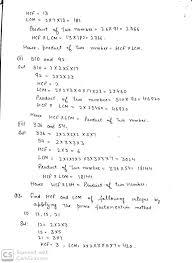 HCF = 13
LCM = 2×7×13 = 182
Product of two number = 26×91 = 2366
HCF × LCM = 13×182 = 2366
Hence, product of two number = HCF × LCM
(ii) 510 and 92
510 = 2×3×5×17
92 = 2×2×23
HCF = 2
LCM = 2×2×3×5×17×23 = 23460
Product of two number = 510×92 = 46920
HCF × LCM = 2×23460 = 46920
Hence
HCF × LCM = Product of two Number.
(iii) 336 and 54.
336 = 2×2×2×2×3×7
54 = 2×3×3×3
HCF = 2×3 = 6
Product of two Number
HCF × LCM
Hence HCF × LCM = Product of two Number.
Q3. Find HCF and LCM of following integers by
applying the prime factorisation method
(i) 12, 15, 21
12 = 2×2×3
15 = 3×5
21 = 3×7
HCF = 3 LCM = 2×2×3×5×7 = 420.
CS Scanned with
CamScanner